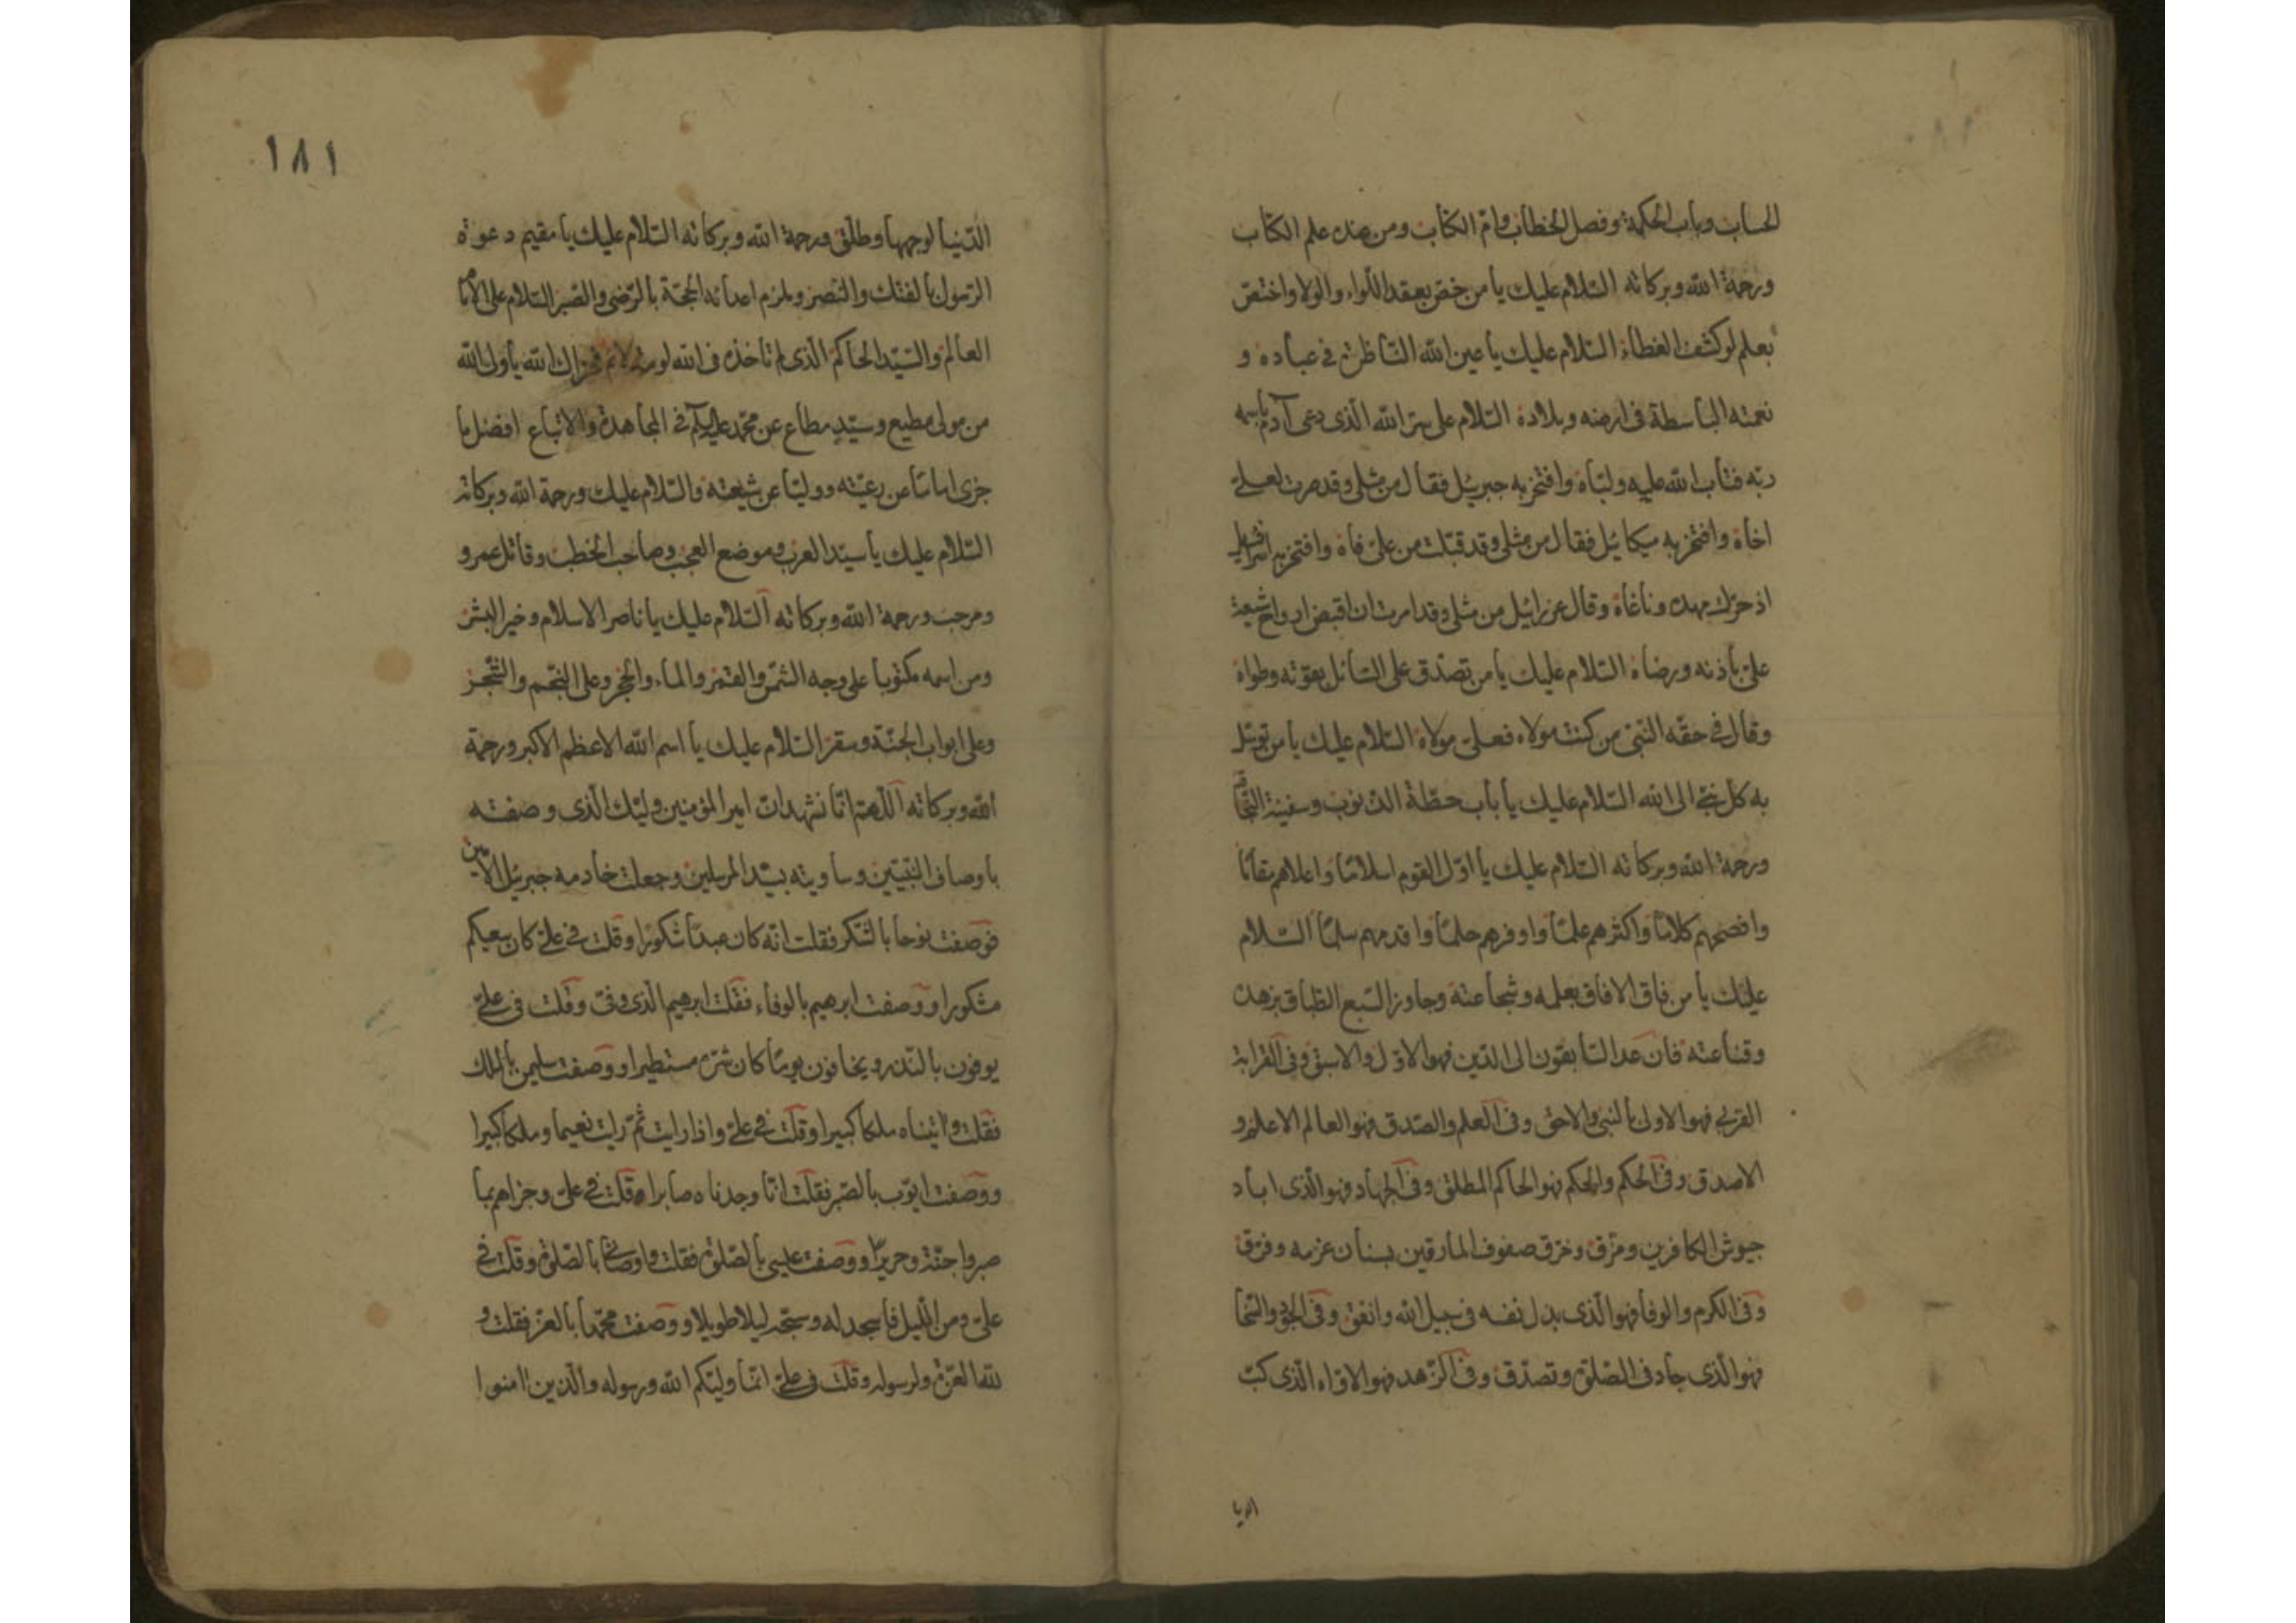 الحساب وباب الحكمة وفصل الخطاب وام الكتاب ومن عنده علم الكتاب
ورحمة الله وبركاته السّلام عليك يا من خصّ بعقد اللّواء والولا واختصّ
بعلم لو كشف الغطاء السّلام عليك يا عين الله النّاظرة في عباده و
نعمته الباسطة في ارضه وبلاده السّلام على سرّ الله الّذى دعى آدم باسمه
ربّه فتاب الله عليه ولبّاه وافتخر به جبرئيل فقال من مثلى وقد صرت لعلىّ
اخاه وافتخر به ميكائيل فقال من مثلى وقد قبّلت من علىّ فاه وافتخر به اسرافيل
اذ حرّك مهده وناغاه وقال عزرائيل من مثلى وقد امرت ان اقبض ارواح شيعة
علىّ باذنه ورضاه السّلام عليك يا من تصدّق على السّائل بقوته وطواه
وقال في حقّه النّبى من كنت مولاه فعلىّ مولاه السّلام عليك يا من توسّل
به كل نبىّ الى الله السّلام عليك يا باب حطّة الذنوب وسفينة النّجاة
ورحمة الله وبركاته السّلام عليك يا اوّل القوم اسلامًا واعلاهم مقامًا
وافصحهم كلامًا واكثرهم علمًا واوفرهم حلمًا واقدمهم سلمًا السّلام
عليك يا من فاق الافاق بعلمه وشجاعته وجاوز السّبع الطّباق بزهده
وقناعته فان عدّ السّابقون الى الدّين فهو الاوّل والاسبق وفى القرابة
القربى فهو الاولى بالنبى والاحق وفى العلم والصّدق فهو العالم الاعلم و
الاصدق وفى الحكم والحكم فهو الحاكم المطلق وفى الجهاد فهو الّذى اباد
جيوش الكافرين ومزّق وخرق صفوف المارقين بسنان عزمه وفرّق
وفى الكرم والوفا فهو الّذى بذل نفسه في سبيل الله وانفق وفى الجود والسّخا
فهو الّذى جاد فى الصّلوة وتصدّق وفى الزّهد فهو الاوّاه الّذى كبّ
الدنيا
١٨١
الدّنيا لوجهها وطلّق ورحمة الله وبركاته السّلام عليك يا مقيم دعوة
الرّسول بالفتك والنّصر وملزم اعدائه الحجّة بالرّضى والصّبر السّلام على الامام
العالم والسّيّد الحاكم الّذى لم تاخذه فى الله لومة لائم فجزاك الله يا ولى الله
من مولى مطيع وسيّد مطاع عن محمّد فى المجاهدة والاتباع افضل ما
جزى امامًا عن رعيّته ووليّا عن شيعته والسّلام عليك ورحمة الله وبركاته
السّلام عليك يا سيّد العرب وموضع العجب وصاحب الخطب وقاتل عمرو
ومرحب ورحمة الله وبركاته السّلام عليك يا ناصر الاسلام وخير البشر
ومن اسمه مكتوبا على وجه الشّمس والقمر والماء والحجر وعلى النّجم والشّجر
وعلى ابواب الجنّة وسقر السّلام عليك يا اسم الله الاعظم الاكبر ورحمة
الله وبركاته اللّهم انّا نشهد انّ امير المؤمنين وليّك الّذى وصفته
باوصاف النّبيّين وساويته بسيّد المرسلين وجعلت خادمه جبرئيل الامين
فوصفت نوحا بالشّكر فقلت انّه كان عبدًا شكورًا وقلت في علىّ كان سعيكم
مشكورا ووصفت ابرهيم بالوفاء فقلت ابرهيم الّذى وفىّ وقلت فى علىّ
يوفون بالنّذر ويخافون يومًا كان شرّه مستطيرا ووصفت سليمن بالملك
فقلت واتيناه ملكا كبيرا وقلت في علىّ واذا رايت ثمّ رايت نعيما وملكا كبيرا
ووصفت ايّوب بالصّبر فقلت انّا وجدناه صابرا وقلت في علىّ وجزاهم بما
صبروا جنّة وحريرًا ووصفت عيسى بالصّلوة فقلت واوصانى بالصّلوة وقلت في
علىّ ومن اللّيل فاسجد له وسبّحه ليلا طويلا ووصفت محمّدا بالعزّ فقلت و
لله العزّة ولرسوله وقلت فى علىّ انّما وليّكم الله ورسوله والّذين امنوا